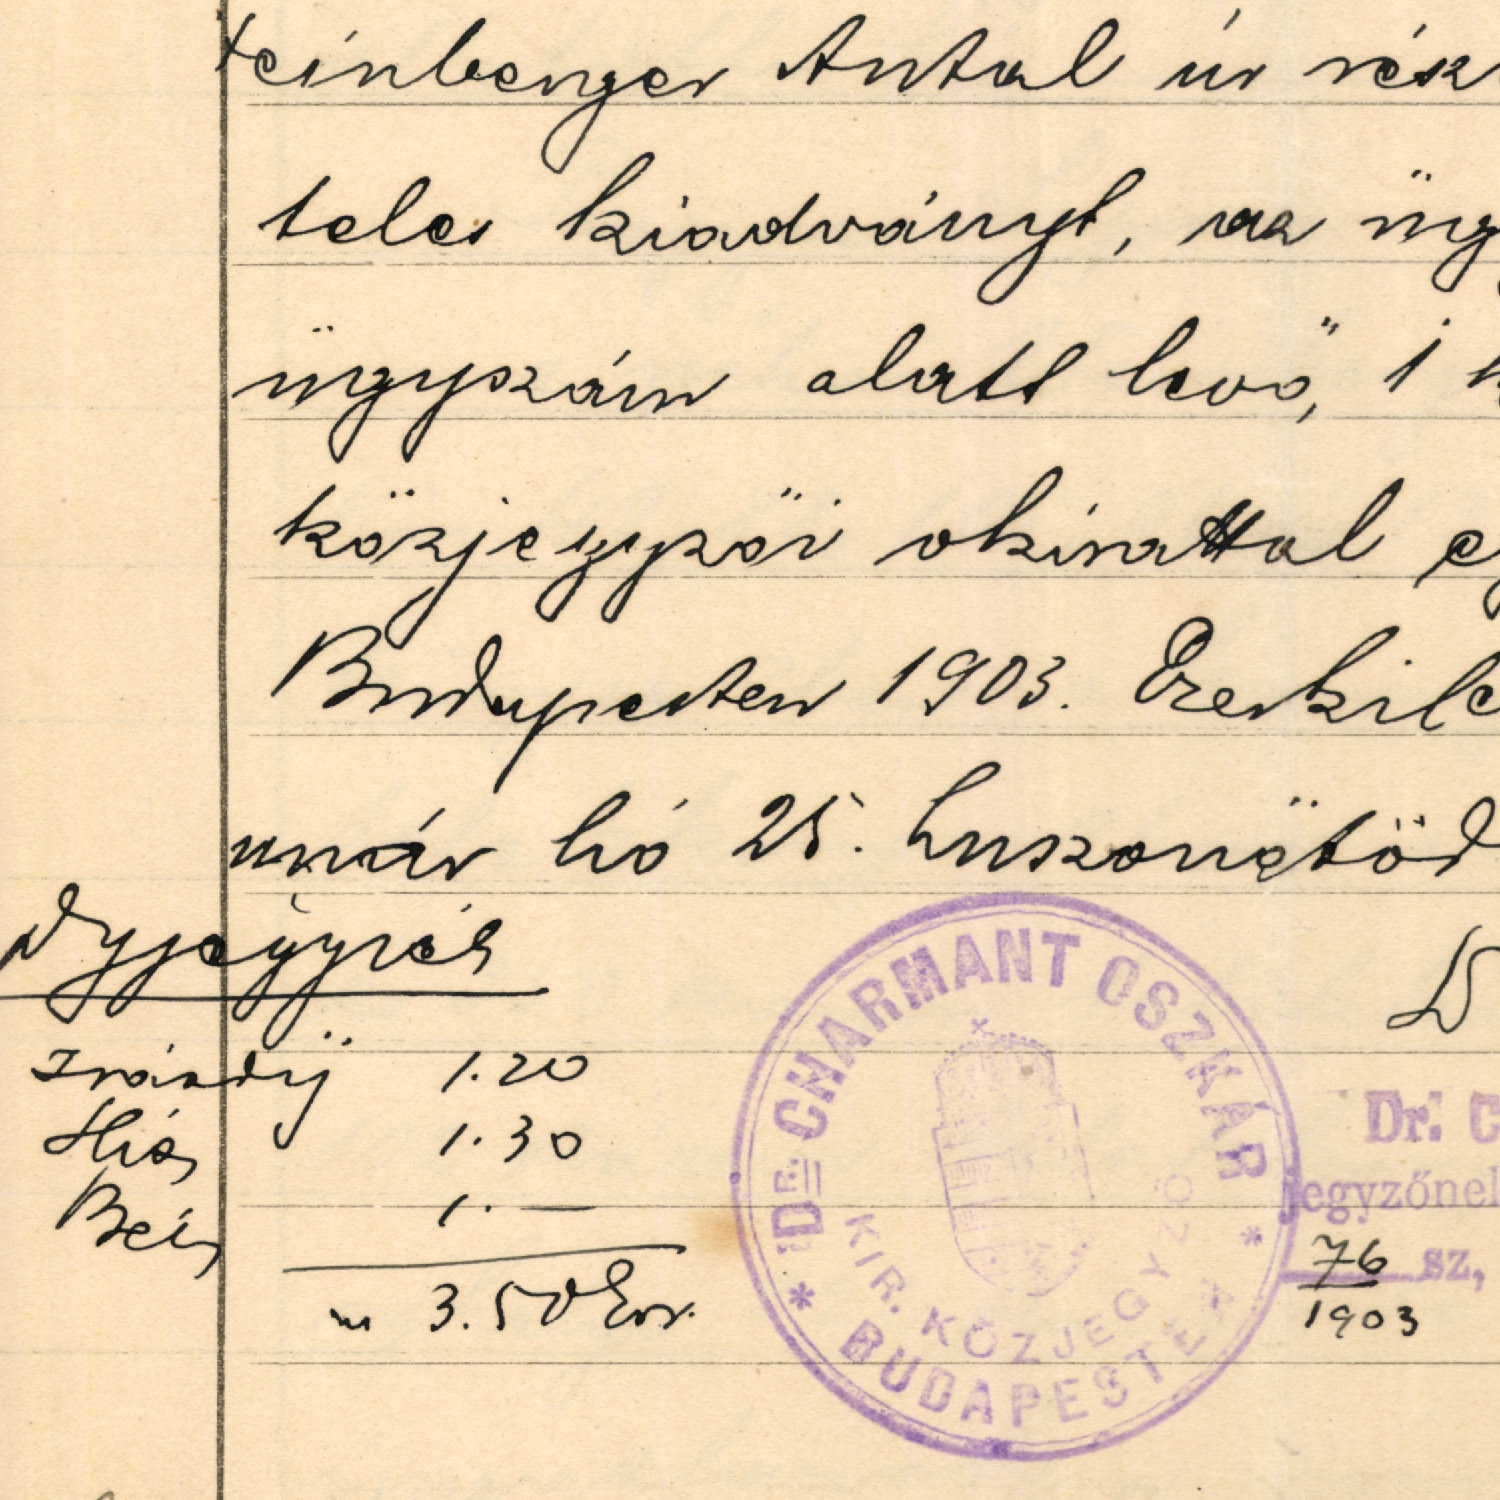 teinberger Antal úr rész
teles kiadványt, az ügy
ügyszám alatt levő, 1 
közjegyzői okirattal eg
Budapesten 1903. Ezerkilc
umár hó 25. huszonötöd
Dijjegyzék
Irásdíj 1.20
Hit. 1.30
Béj. 1.—
3.50 kor.
Dr. CHARMANT OSZKÁR
KIR. KÖZJEGYZŐ
* BUDAPESTEN *
Dr. C
jegyzőnel
76 sz,
1903